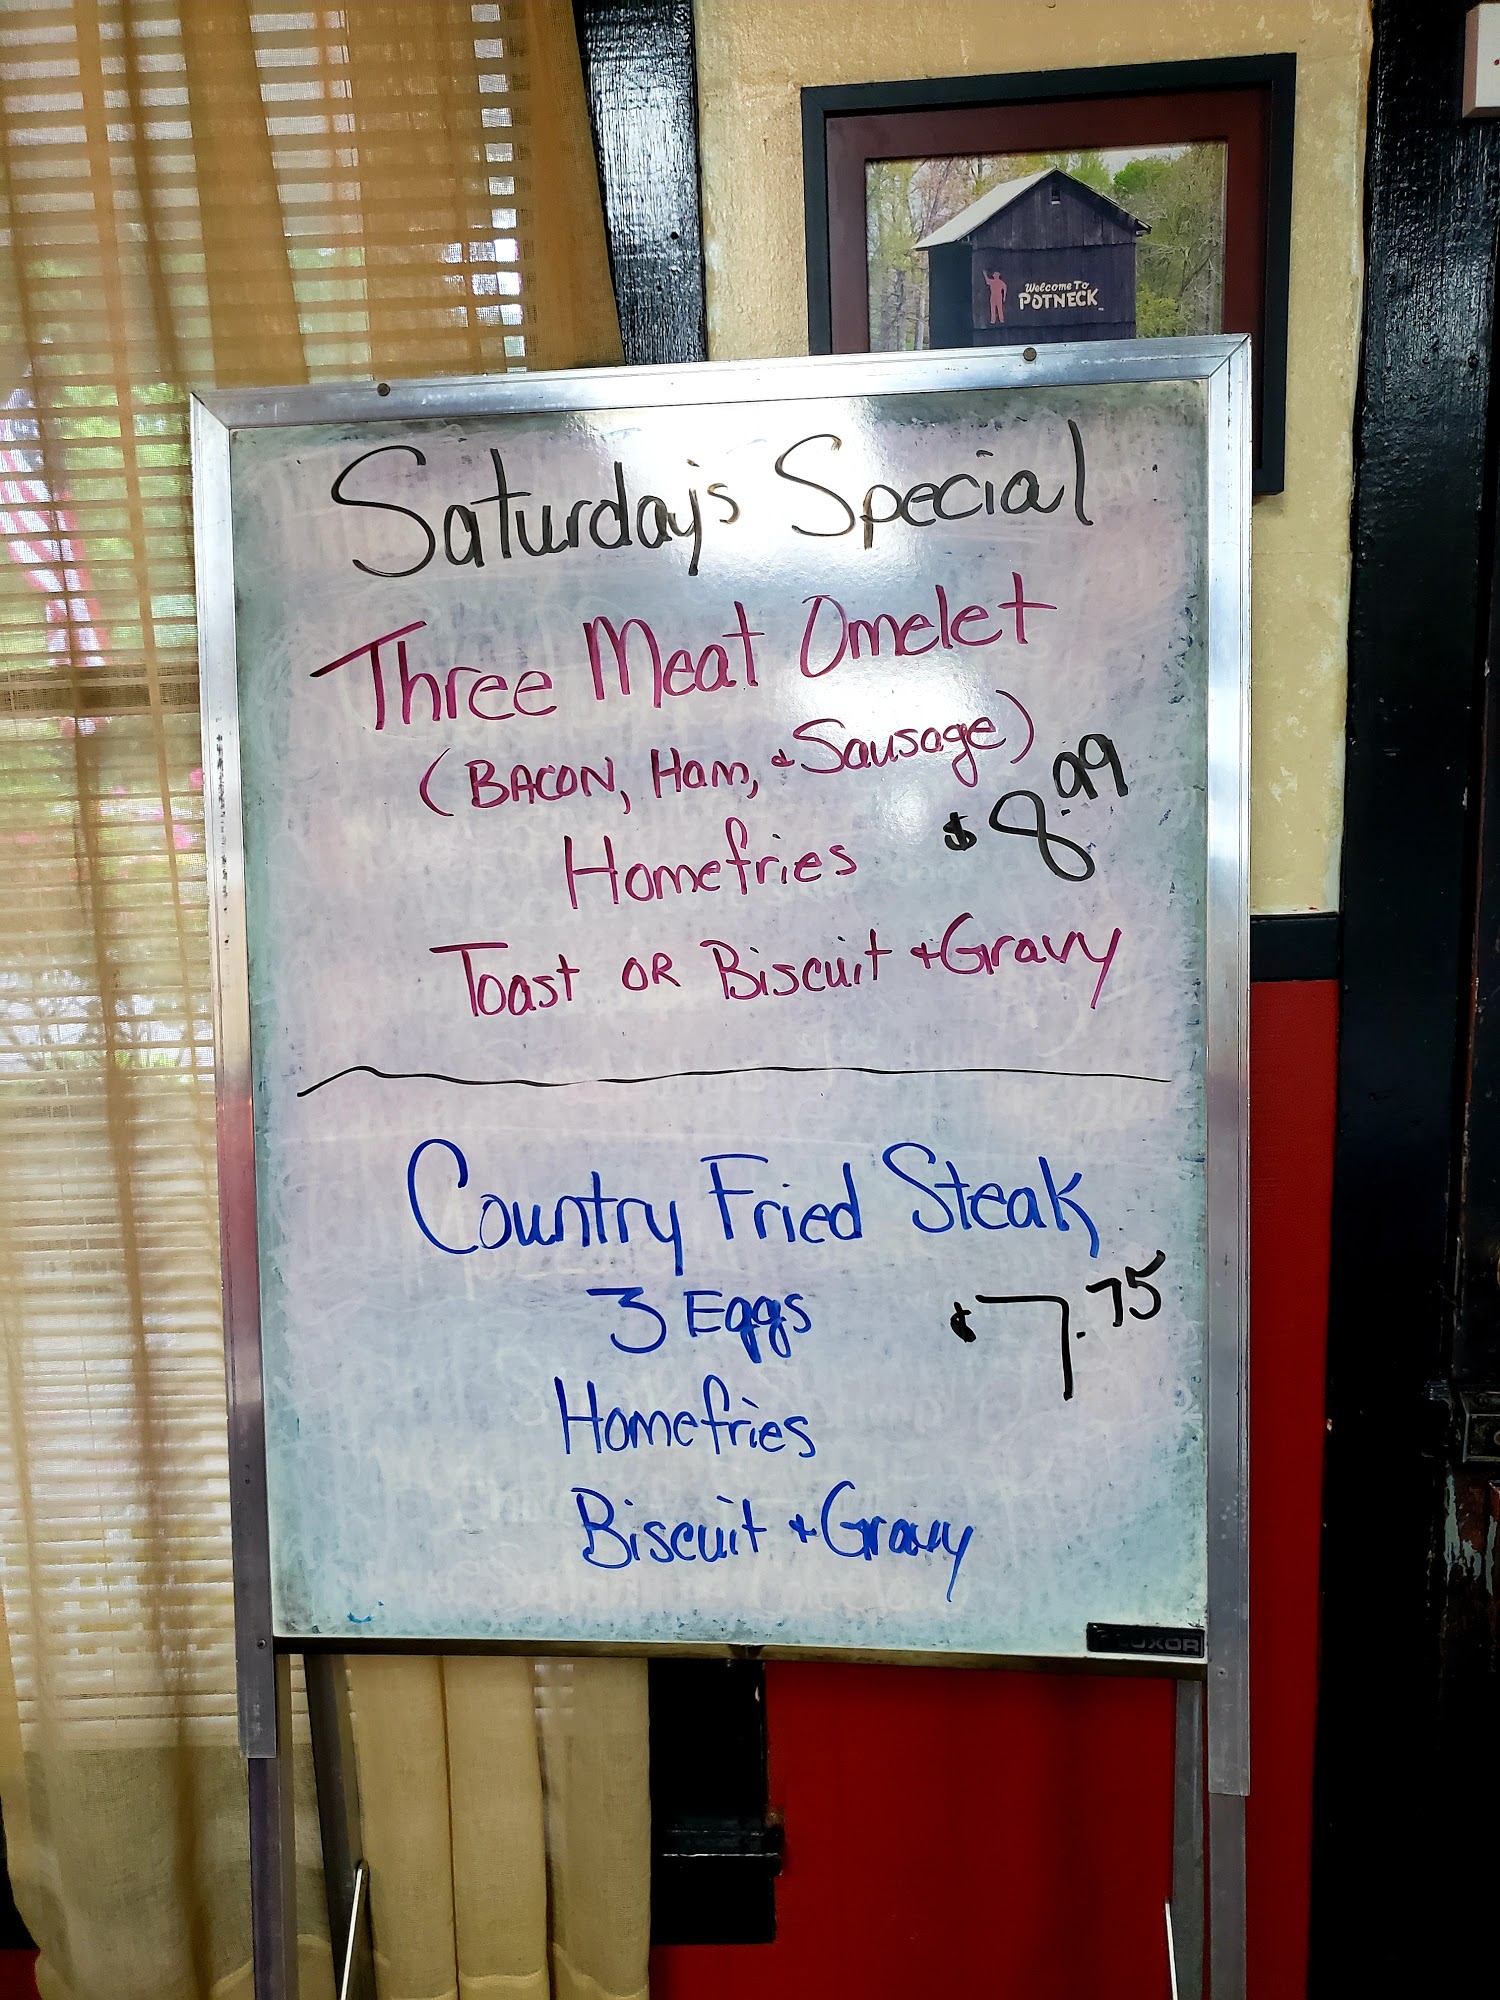 Welcome To
POTNECK
Saturday's Special
Three Meat Omelet
(BACON, Ham, & Sausage)
$8.99
Homefries
Toast OR Biscuit & Gravy
Country Fried Steak
3 Eggs
$7.75
Homefries
Biscuit & Gravy
LUXOR